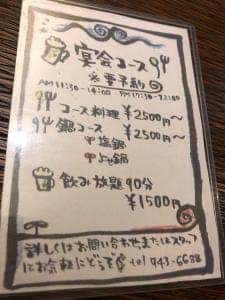 宴会コース
※要予約
AM11:30-14:00 PM17:30-22:00
コース料理 ¥2500円~
鍋コース ¥2500円~
塩鍋
飲み放題 90分
¥1500円
詳しくはお問い合わせまたはスタッフ
にお気軽にどうぞ tel 943-6688